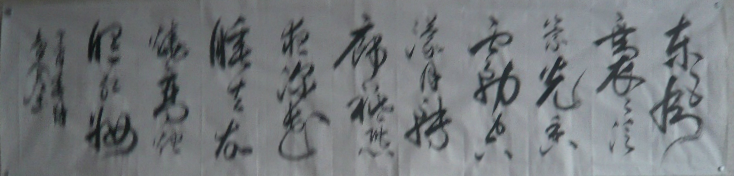 东风
袅袅泛
崇光香
雾空
蒙月转
廊祗恐
夜深花
睡去故
烧高烛
照红妆